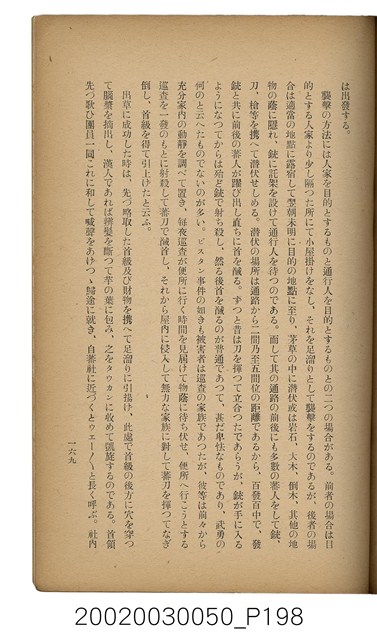 は出發する。
襲擊の方法には人家を目的とするものと通行人を目的とするものとの二つの場合がある。前者の場合は目
的とする人家より少し隔つた所にて小屋掛けをなし、それを足溜りとして襲擊をするのであるが、後者の場
合は適當の地點に露宿して翌朝未明に目的の地點に至り、茅草の中に潛伏或は岩石、大木、倒木、其他の地
物の蔭に隱れ、銃に託架を設けて通行人を待つのである。而して其の通路の前後にも多數の蕃人をして銃、
刀、槍等を携へて潛伏せしめる。潛伏の場所は通路から二間乃至五間位の距離であるから、百發百中で、發
銃と共に前後の蕃人が躍び出し直ちに首を馘る。ずつと昔は刀を揮つて立合つたであらうが、銃が手に入る
ようになつてからは殆ど銃で射ち殺し、然る後首を馘るのが普通であつて、甚だ卑怯なものであり、武勇の
何のと云へたものでないのが多い。ピスタン事件の如きも被害者は巡査の家族であつたが、彼等は前々から
充分家內の動靜を調べて置き、每夜巡査が便所に行く時間を見屆けて物蔭に待ち伏せ、便所へ行こうとする
巡査を一發のもとに射殺して蕃刀で馘首し、それから屋內に侵入して無力な家族に對して蕃刀を揮つてなぎ
倒し、首級を得て引上げたと云ふ。
出草に成功した時は、先づ略取した首級及び財物を携へて足溜りに引揚げ、此處で首級の後方に穴を穿つ
て腦漿を摘出し、漢人であれば辮髮を斷つて芋の葉に包み、之をタウカンに收めて凱旋するのである。首領
先づ歌ひ團員一同これに和して喊聲をあげつゝ歸途に就き、自蕃社に近づくとウェー〱と長く呼ぶ。社內
一六九
20020030050_P198